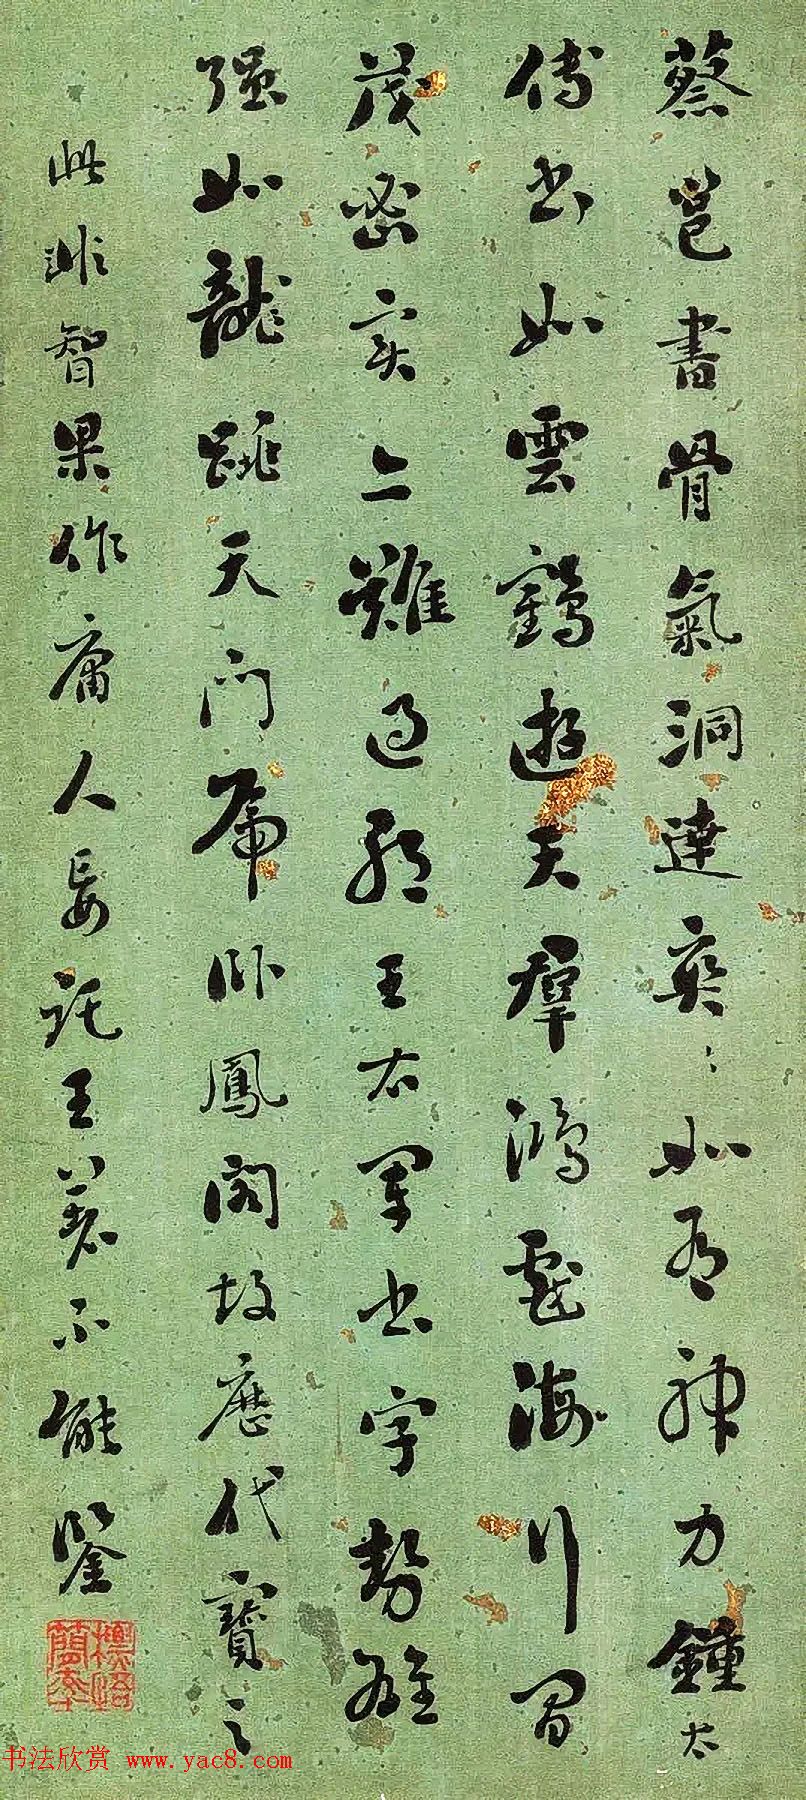 蔡邕書骨氣洞達爽〻如有神力鍾太
傅書如雲鵠遊天羣鴻戲海行間
茂密實亦難過耶王右軍書字勢雄
强如龍跳天門虎臥鳳閣故歷代寶之
此非智果作庸人妄託王著不能鑒
书法欣赏 www.yac8.com